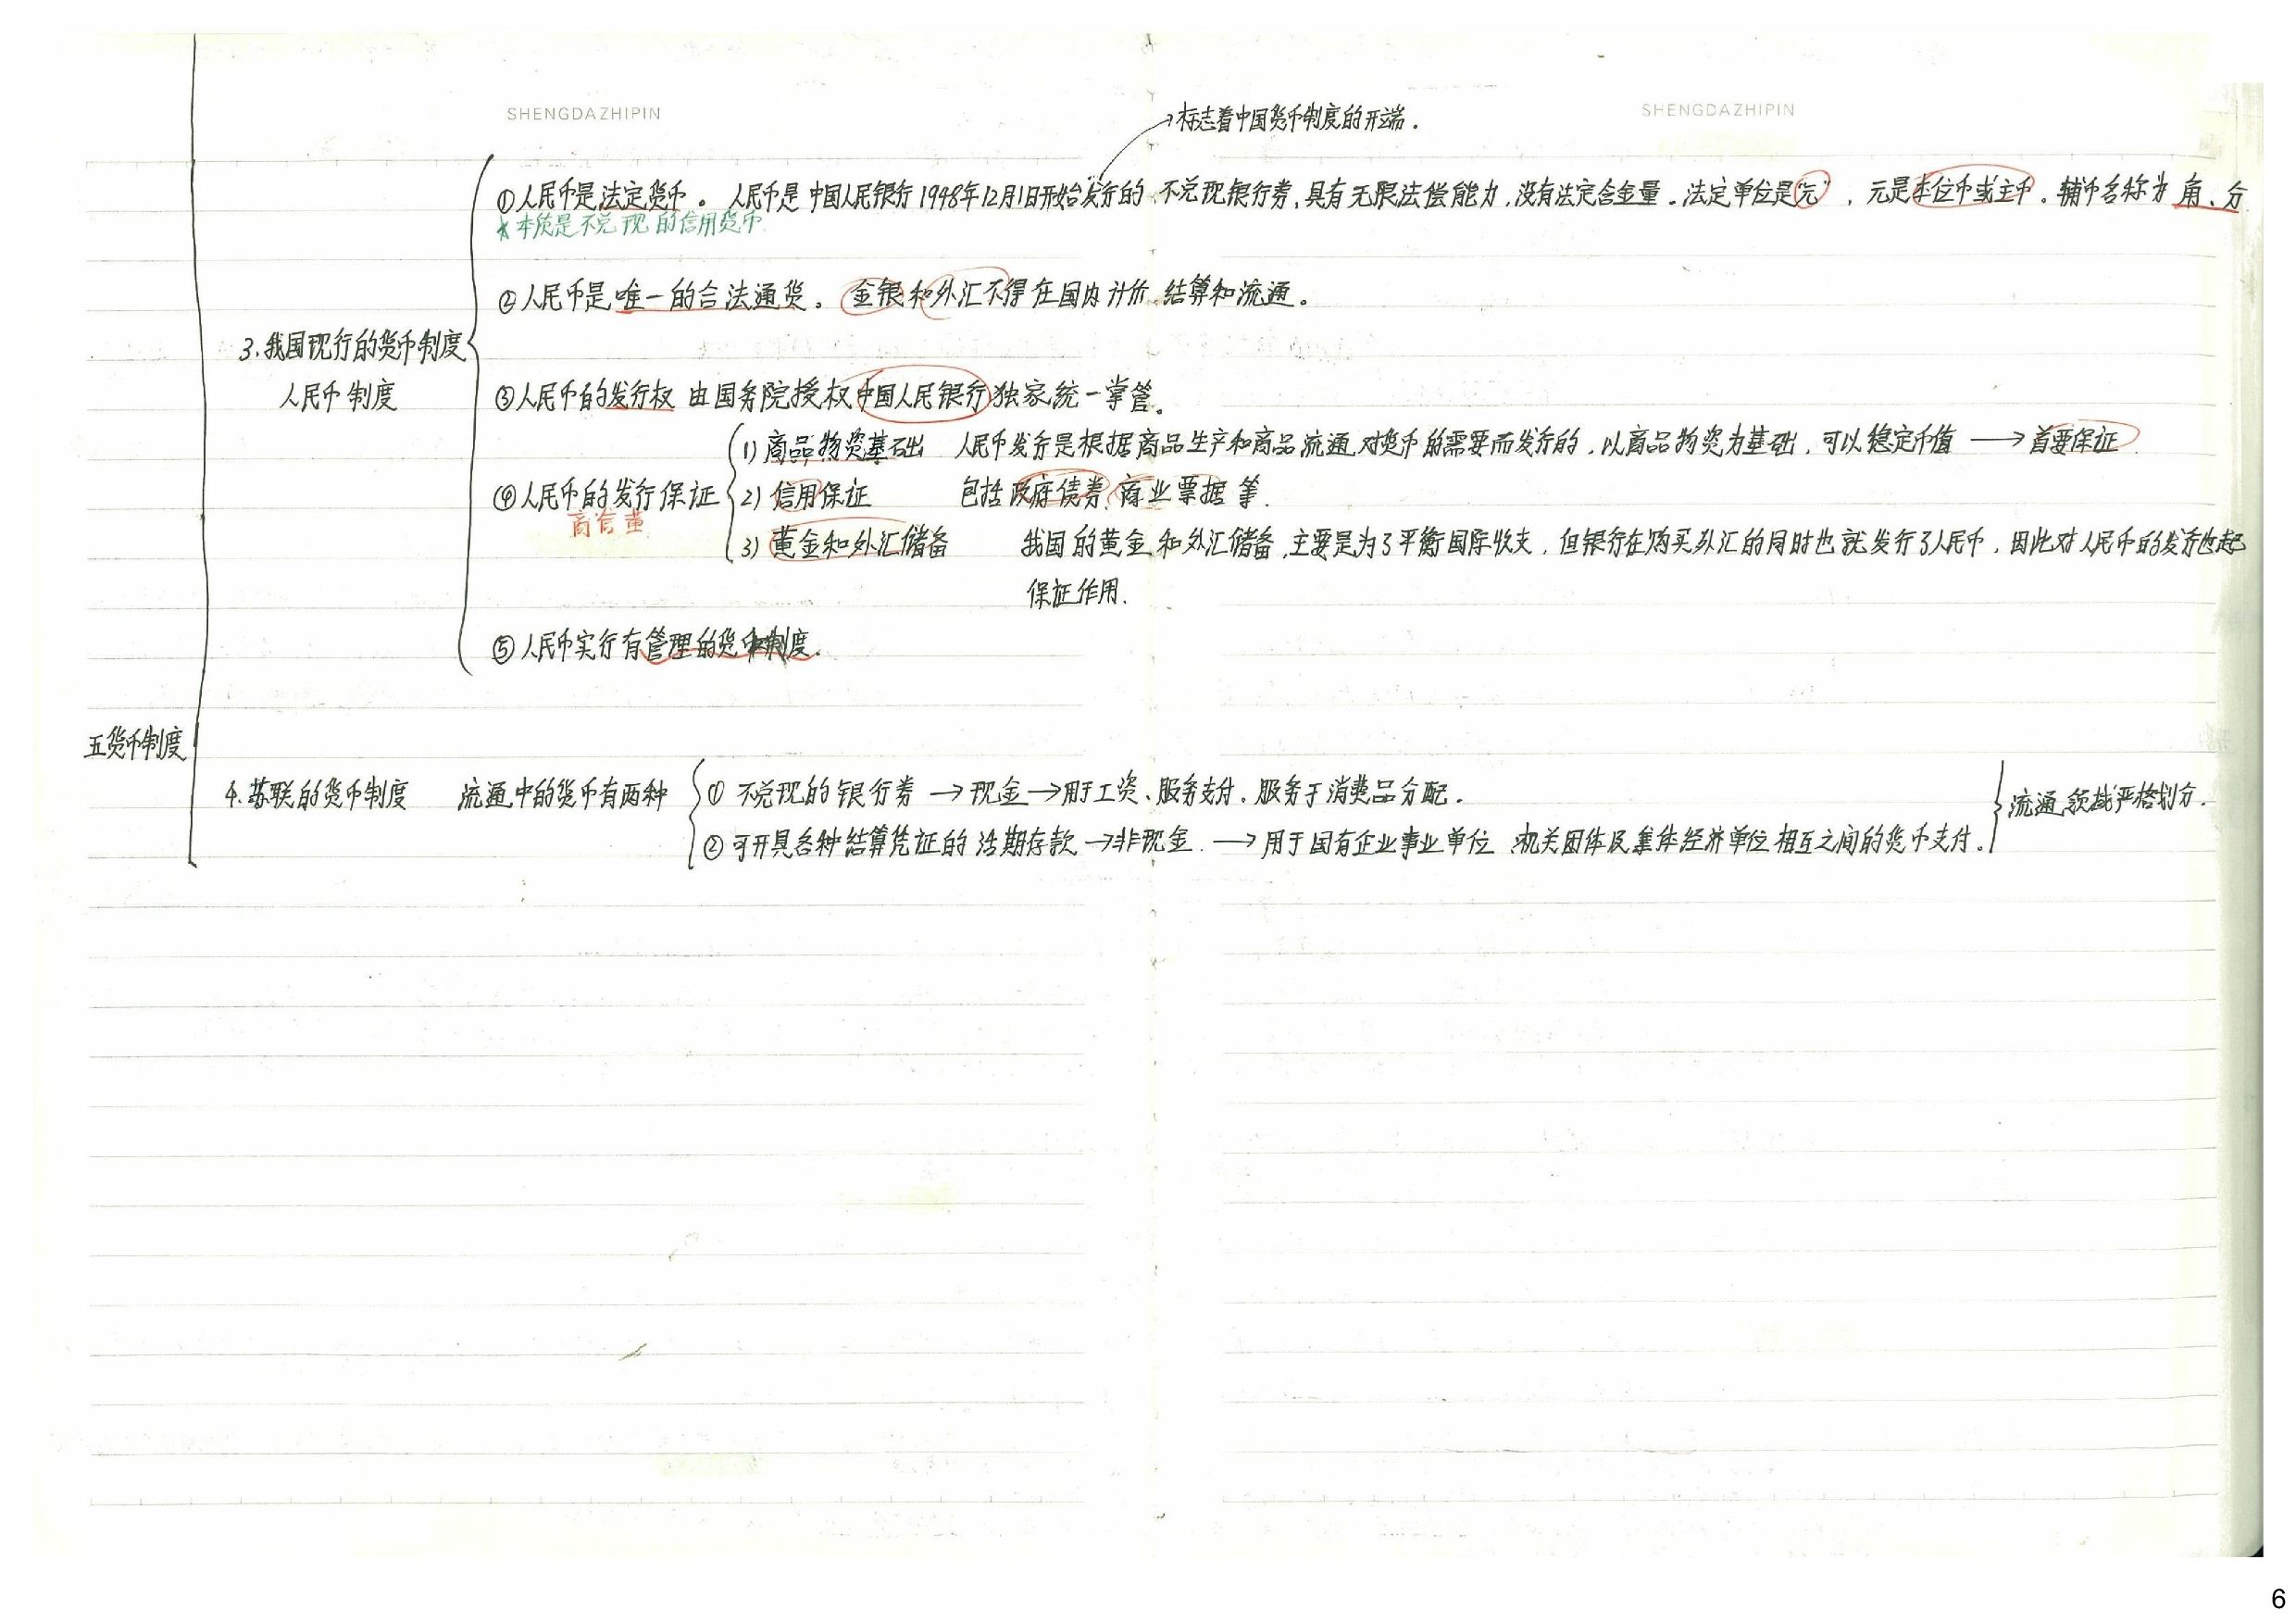 SHENGDAZHIPIN
SHENGDAZHIPIN
→标志着中国货币制度的开端.
①人民币是法定货币。人民币是中国人民银行1948年12月1日开始发行的、不兑现银行券,具有无限法偿能力,没有法定含金量.法定单位是"元",元是本位币或主币。辅币名称为角、分
*本质是不兑现的信用货币
②人民币是唯一的合法通货。金银和外汇不得在国内计价、结算和流通。
3.我国现行的货币制度
人民币制度
③人民币的发行权 由国务院授权中国人民银行独家统一掌管。
④人民币的发行保证
商信黄
1) 商品物资基础 人民币发行是根据商品生产和商品流通对货币的需要而发行的,以商品物资为基础,可以稳定币值 → 首要保证
2) 信用保证 包括政府债券、商业票据等.
3) 黄金和外汇储备 我国的黄金和外汇储备,主要是为了平衡国际收支,但银行在购买外汇的同时也就发行了人民币,因此对人民币的发行也起
保证作用.
⑤人民币实行有管理的货币制度.
五货币制度
4.苏联的货币制度 流通中的货币有两种
① 不兑现的银行券 → 现金 → 用于工资、服务支付,服务于消费品分配.
② 可开具各种结算凭证的活期存款 → 非现金. → 用于国有企业事业单位 机关团体及集体经济单位相互之间的货币支付.
流通领域严格划分.
6